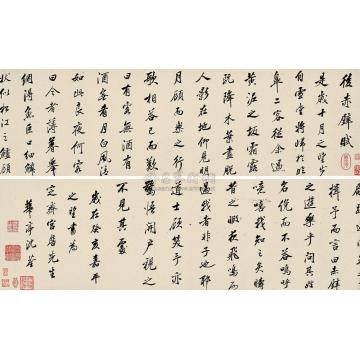 後赤壁賦
是歲十月之望步
自雪堂將歸於臨
皐二客從余過
黃泥之坂霜露
既降木葉盡脫
人影在地仰見明
月顧而樂之行
歌相答已而歎
曰有客無酒有
酒無肴月白風清
如此良夜何客
曰今者薄暮舉
網得魚巨口細鱗
狀似松江之鱸顧
揖予而言曰赤壁
之遊樂乎問其姓
名俛而不答嗚呼
噫嘻我知之矣疇
昔之夜飛鳴而
過我者非子也耶
道士顧笑予亦
驚悟開戶視之
不見其處
歲在癸亥嘉平
之望書為
定齋宮詹先生
華亭沈荃